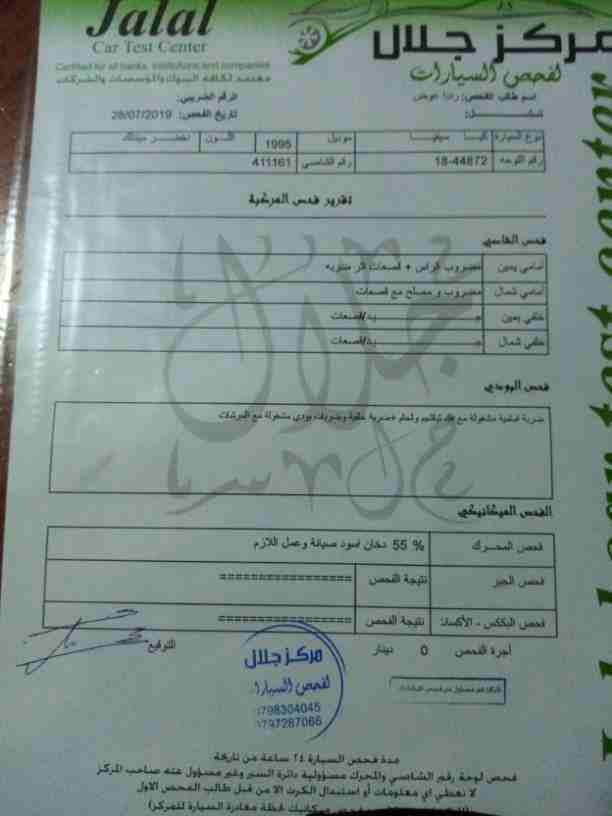 Jalal
Car Test Center
Certified for all banks, institutions and companies
معتمد لكافة البنوك والمؤسسات والشركات
مركز جلال
لفحص السيارات
اسم طالب الفحص: رندا عوض
الرقم الضريبي:
تاريخ الفحص: 28/07/2019
نوع السيارة كيا سيفيا موديل 1995 اللون اخضر ميتالك
رقم اللوحه 18-44872 رقم الشاصي 411161
تقرير فحص المركبة
فحص الشاصي
أمامي يمين مضروب الراس + قصعات اثر
أمامي شمال مضروب و مصلح مع قصعات
خلفي يمين جيد/قصعات
خلفي شمال جيد/قصعات
فحص البودي
ضربة امامية مشغولة مع فك ولحام +ضربة خلفية وضربات بودي مشغولة مع الرشات
الفحص الميكانيكي
فحص المحرك 55 % دخان اسود صيانة وعمل اللازم
فحص الجير نتيجة الفحص =================
فحص البكاكس - الأكسات نتيجة الفحص =================
أجرة الفحص 0 دينار
التوقيع
مركز جلال
لفحص السيارات
0798304045
0797287066
مدة فحص السيارة ٢٤ ساعة من تاريخه
فحص لوحة رقم الشاصي والمحرك مسؤولية دائرة السير وغير مسؤول عنه صاحب المركز
لا نعطي اي معلومات أو استبدال الكرت الا من قبل طالب الفحص الاول
لحظة مغادرة السيارة للمركز)
Jalal car test center